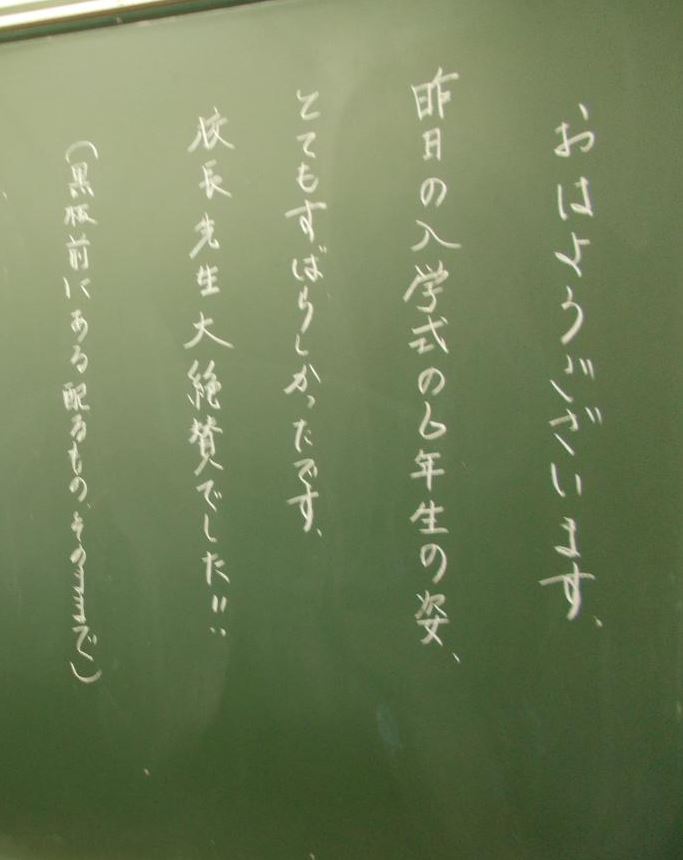 おはようございます、
昨日の入学式の6年生の姿、
とてもすばらしかったです、
校長先生大絶賛でした!!
(黒板前にある配るもの、そのままで)